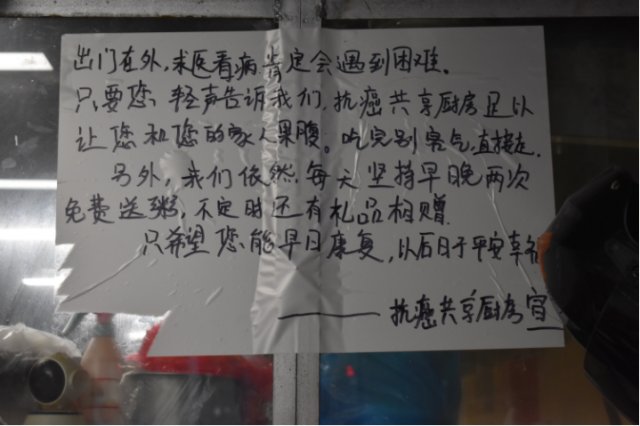 出门在外,求医看病肯定会遇到困难。
只要您轻声告诉我们,抗癌共享厨房足以
让您和您的家人果腹。吃完别客气,直接走.
另外,我们依然,每天坚持早晚两次
免费送粥,不定时还有礼品相赠.
只希望您能早日康复,以后日子平安幸福
——抗癌共享厨房宣